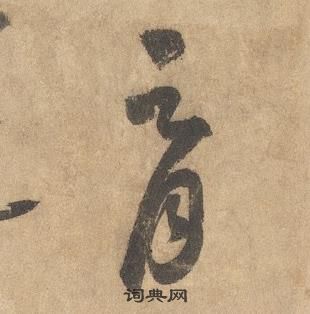 育
词典网